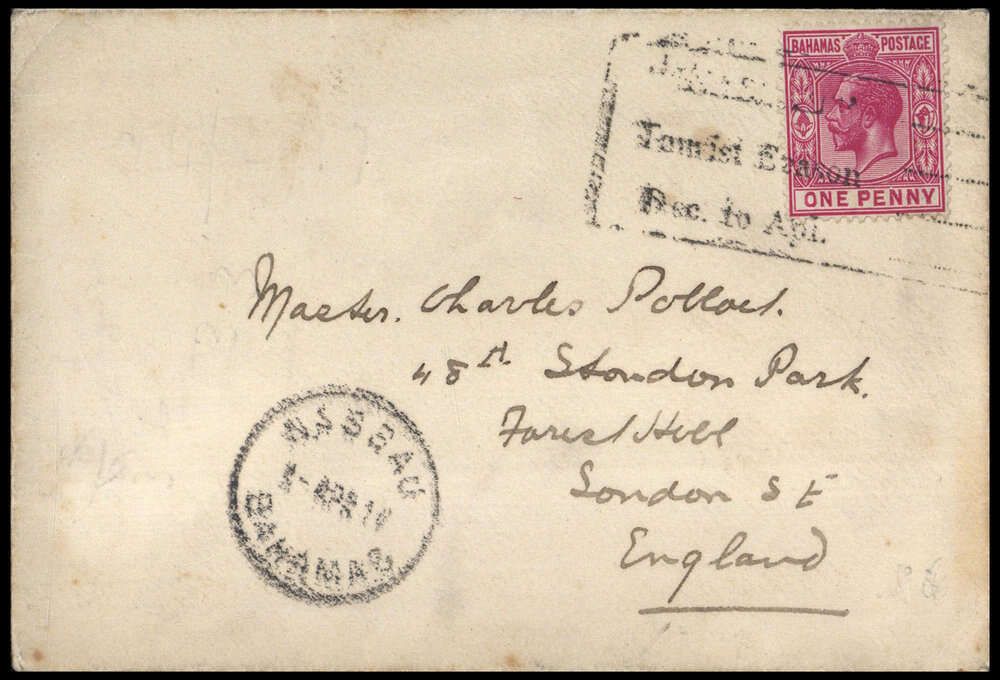 BAHAMAS POSTAGE
ONE PENNY
Tourist Season
Dec. to Apl.
Master. Charles Pollock.
48A Stondon Park.
Forest Hill
London S E
England
NASSAU
APR
BAHAMAS